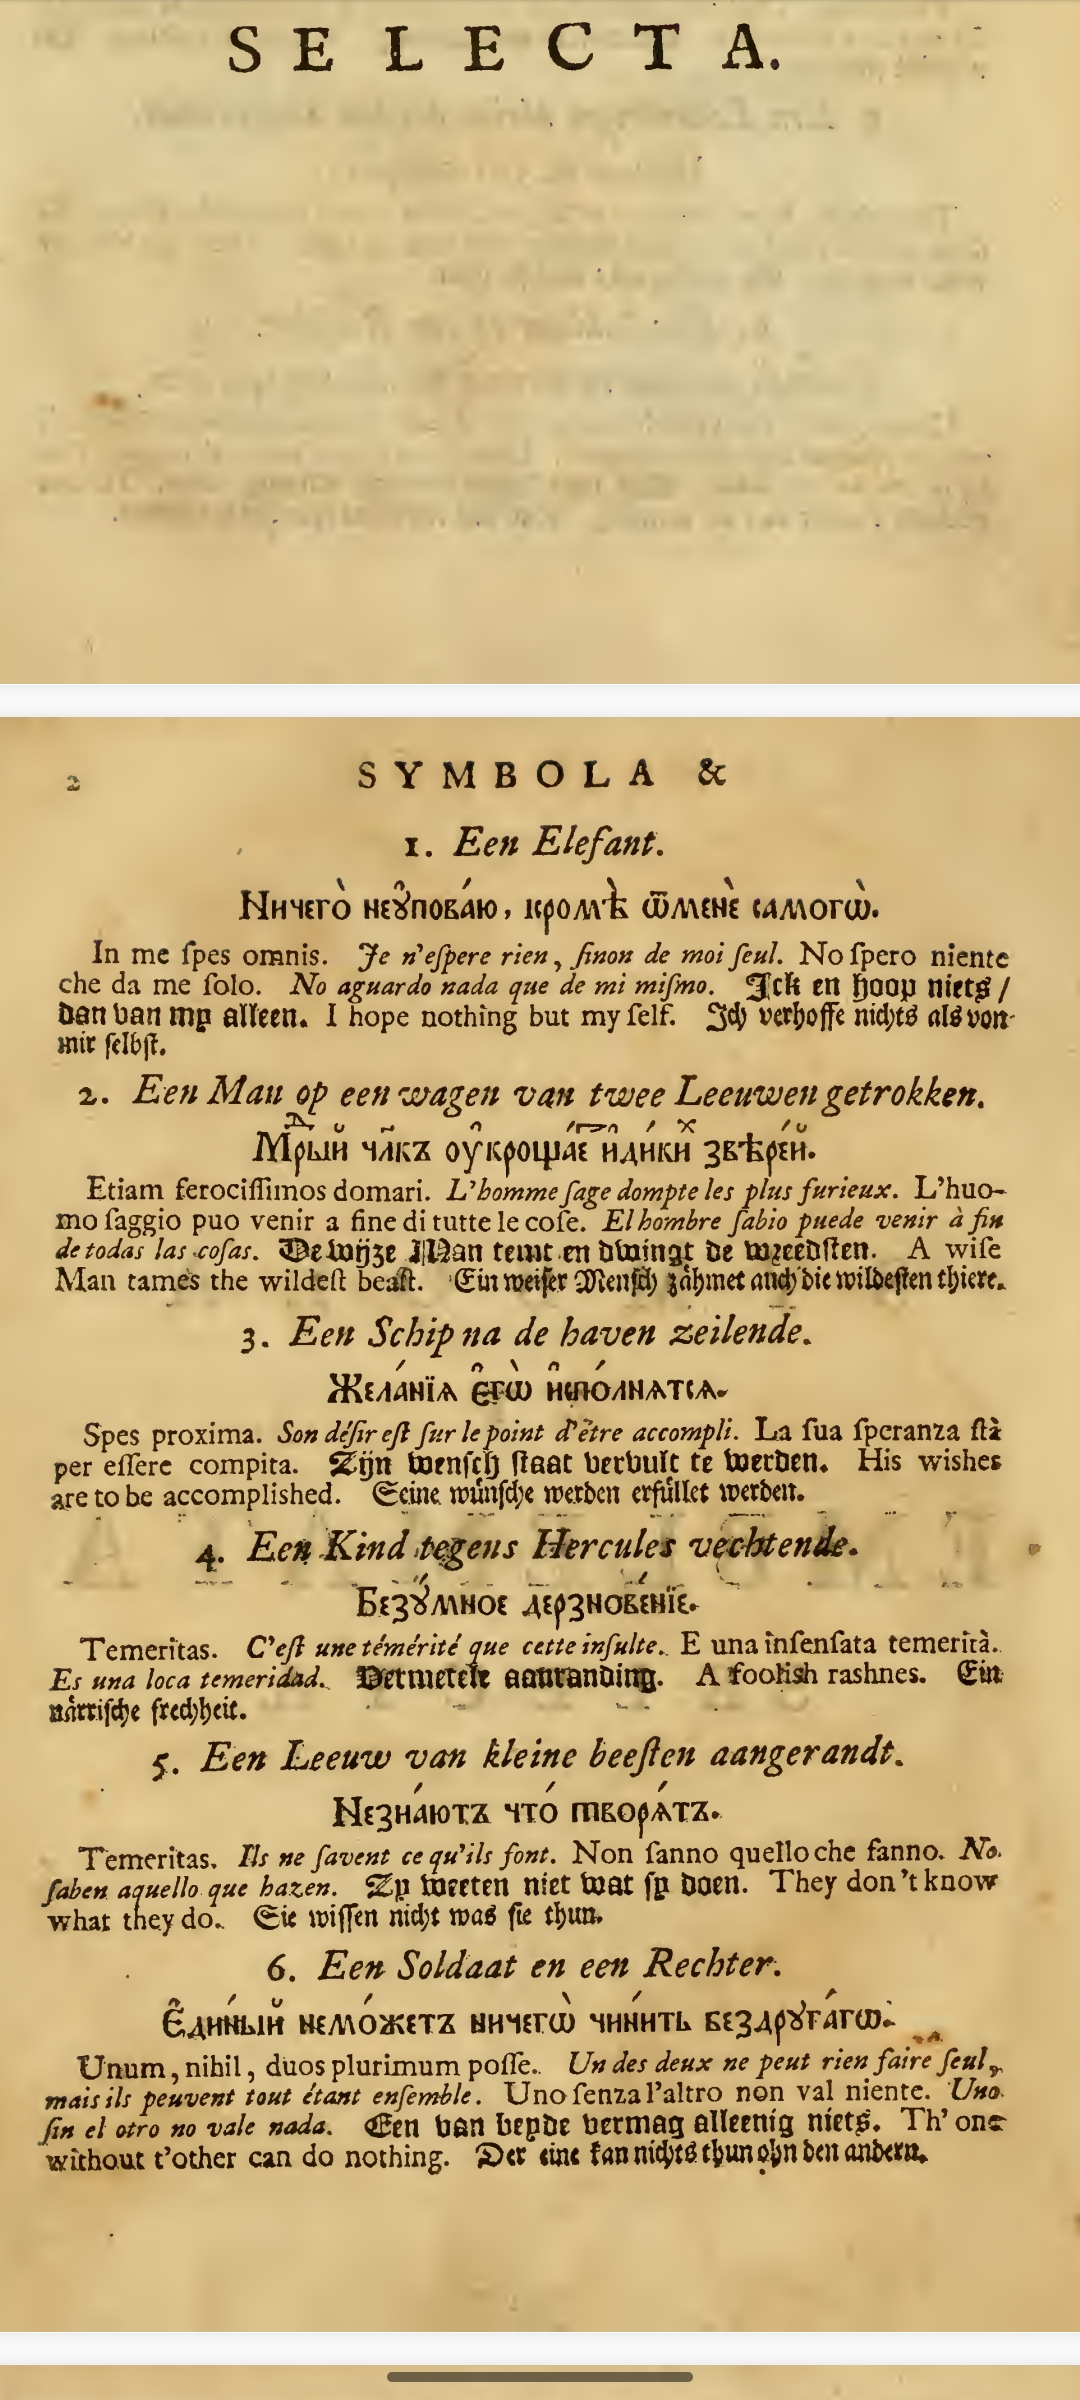 SELECTA.
2 SYMBOLA &
1. Een Elefant.
Ничегѡ̀ неꙋ̑пова́ю, кромѣ̀ ѿменѐ самогѡ̀.
In me ſpes omnis. Je n'eſpere rien, ſinon de moi ſeul. No ſpero niente
che da me ſolo. No aguardo nada que de mi miſmo. Ick en hoop niets /
dan van my alleen. I hope nothing but my ſelf. Ich verhoffe nichts als von
mir ſelbſt.
2. Een Man op een wagen van twee Leeuwen getrokken.
Мⷣрый члкъ оукрощае́ зѣре́й.
Etiam ferociſſimos domari. L'homme ſage dompte les plus furieux. L'huo-
mo ſaggio puo venir a fine di tutte le coſe. El hombre ſabio puede venir à fin
de todas las coſas. De wijze Man temt en dwingt de wreedſten. A wiſe
Man tames the wildeſt beaſt. Ein weiſer Menſch zähmet auch die wildeſten thiere.
3. Een Schip na de haven zeilende.
Жела́нїѧ є҆гѡ̀ и҆спо́лнѧтсѧ.
Spes proxima. Son déſir eſt ſur le point d'être accompli. La ſua ſperanza ſtà
per eſſere compita. Zijn wenſch ſtaat vervult te werden. His wishes
are to be accomplished. Seine wünſche werden erfüllet werden.
4. Een Kind tegens Hercules vechtende.
Безꙋ́мное дерзнове́нїе.
Temeritas. C'eſt une témérité que cette inſulte. E una inſenſata temerità.
Es una loca temeridad. Vermetele aanranding. A foolish rashnes. Ein
närriſche frechheit.
5. Een Leeuw van kleine beeſten aangerandt.
Незна́ютъ что́ творѧ́тъ.
Temeritas. Ils ne ſavent ce qu'ils font. Non ſanno quello che fanno. No
ſaben aquello que hazen. Zy weeten niet wat ſy doen. They don't know
what they do. Sie wiſſen nicht was ſie thun.
6. Een Soldaat en een Rechter.
Е҆ди́ный немо́жетъ ничегѡ̀ чини́ть бездрꙋга́гѡ.
Unum, nihil, duos plurimum poſſe. Un des deux ne peut rien faire ſeul,
mais ils peuvent tout étant enſemble. Uno ſenza l'altro non val niente. Uno
ſin el otro no vale nada. Een van beyde vermag alleenig niets. Th' one
without t'other can do nothing. Der eine kan nichts thun ohn den andern.